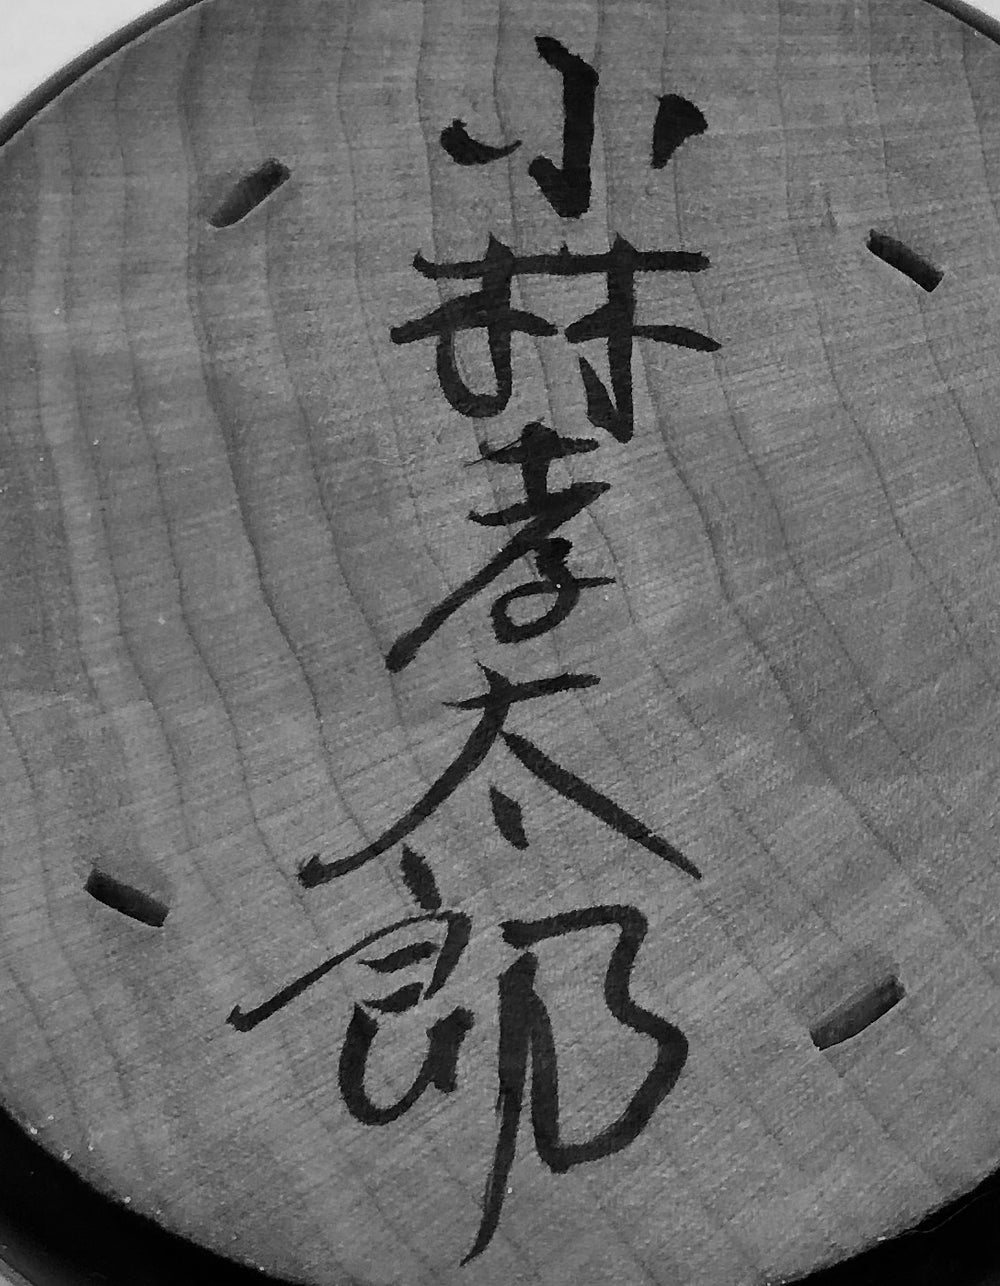 小林孝太郎